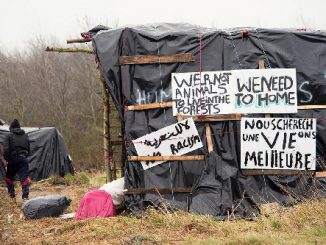 WERNOT
ANIMALS
TO LIVE IN THE
FORESTS
WE NEED
TO HOME
HOME
RACISM
NOUS CHERECH
UNE VIE
MEILLEURE